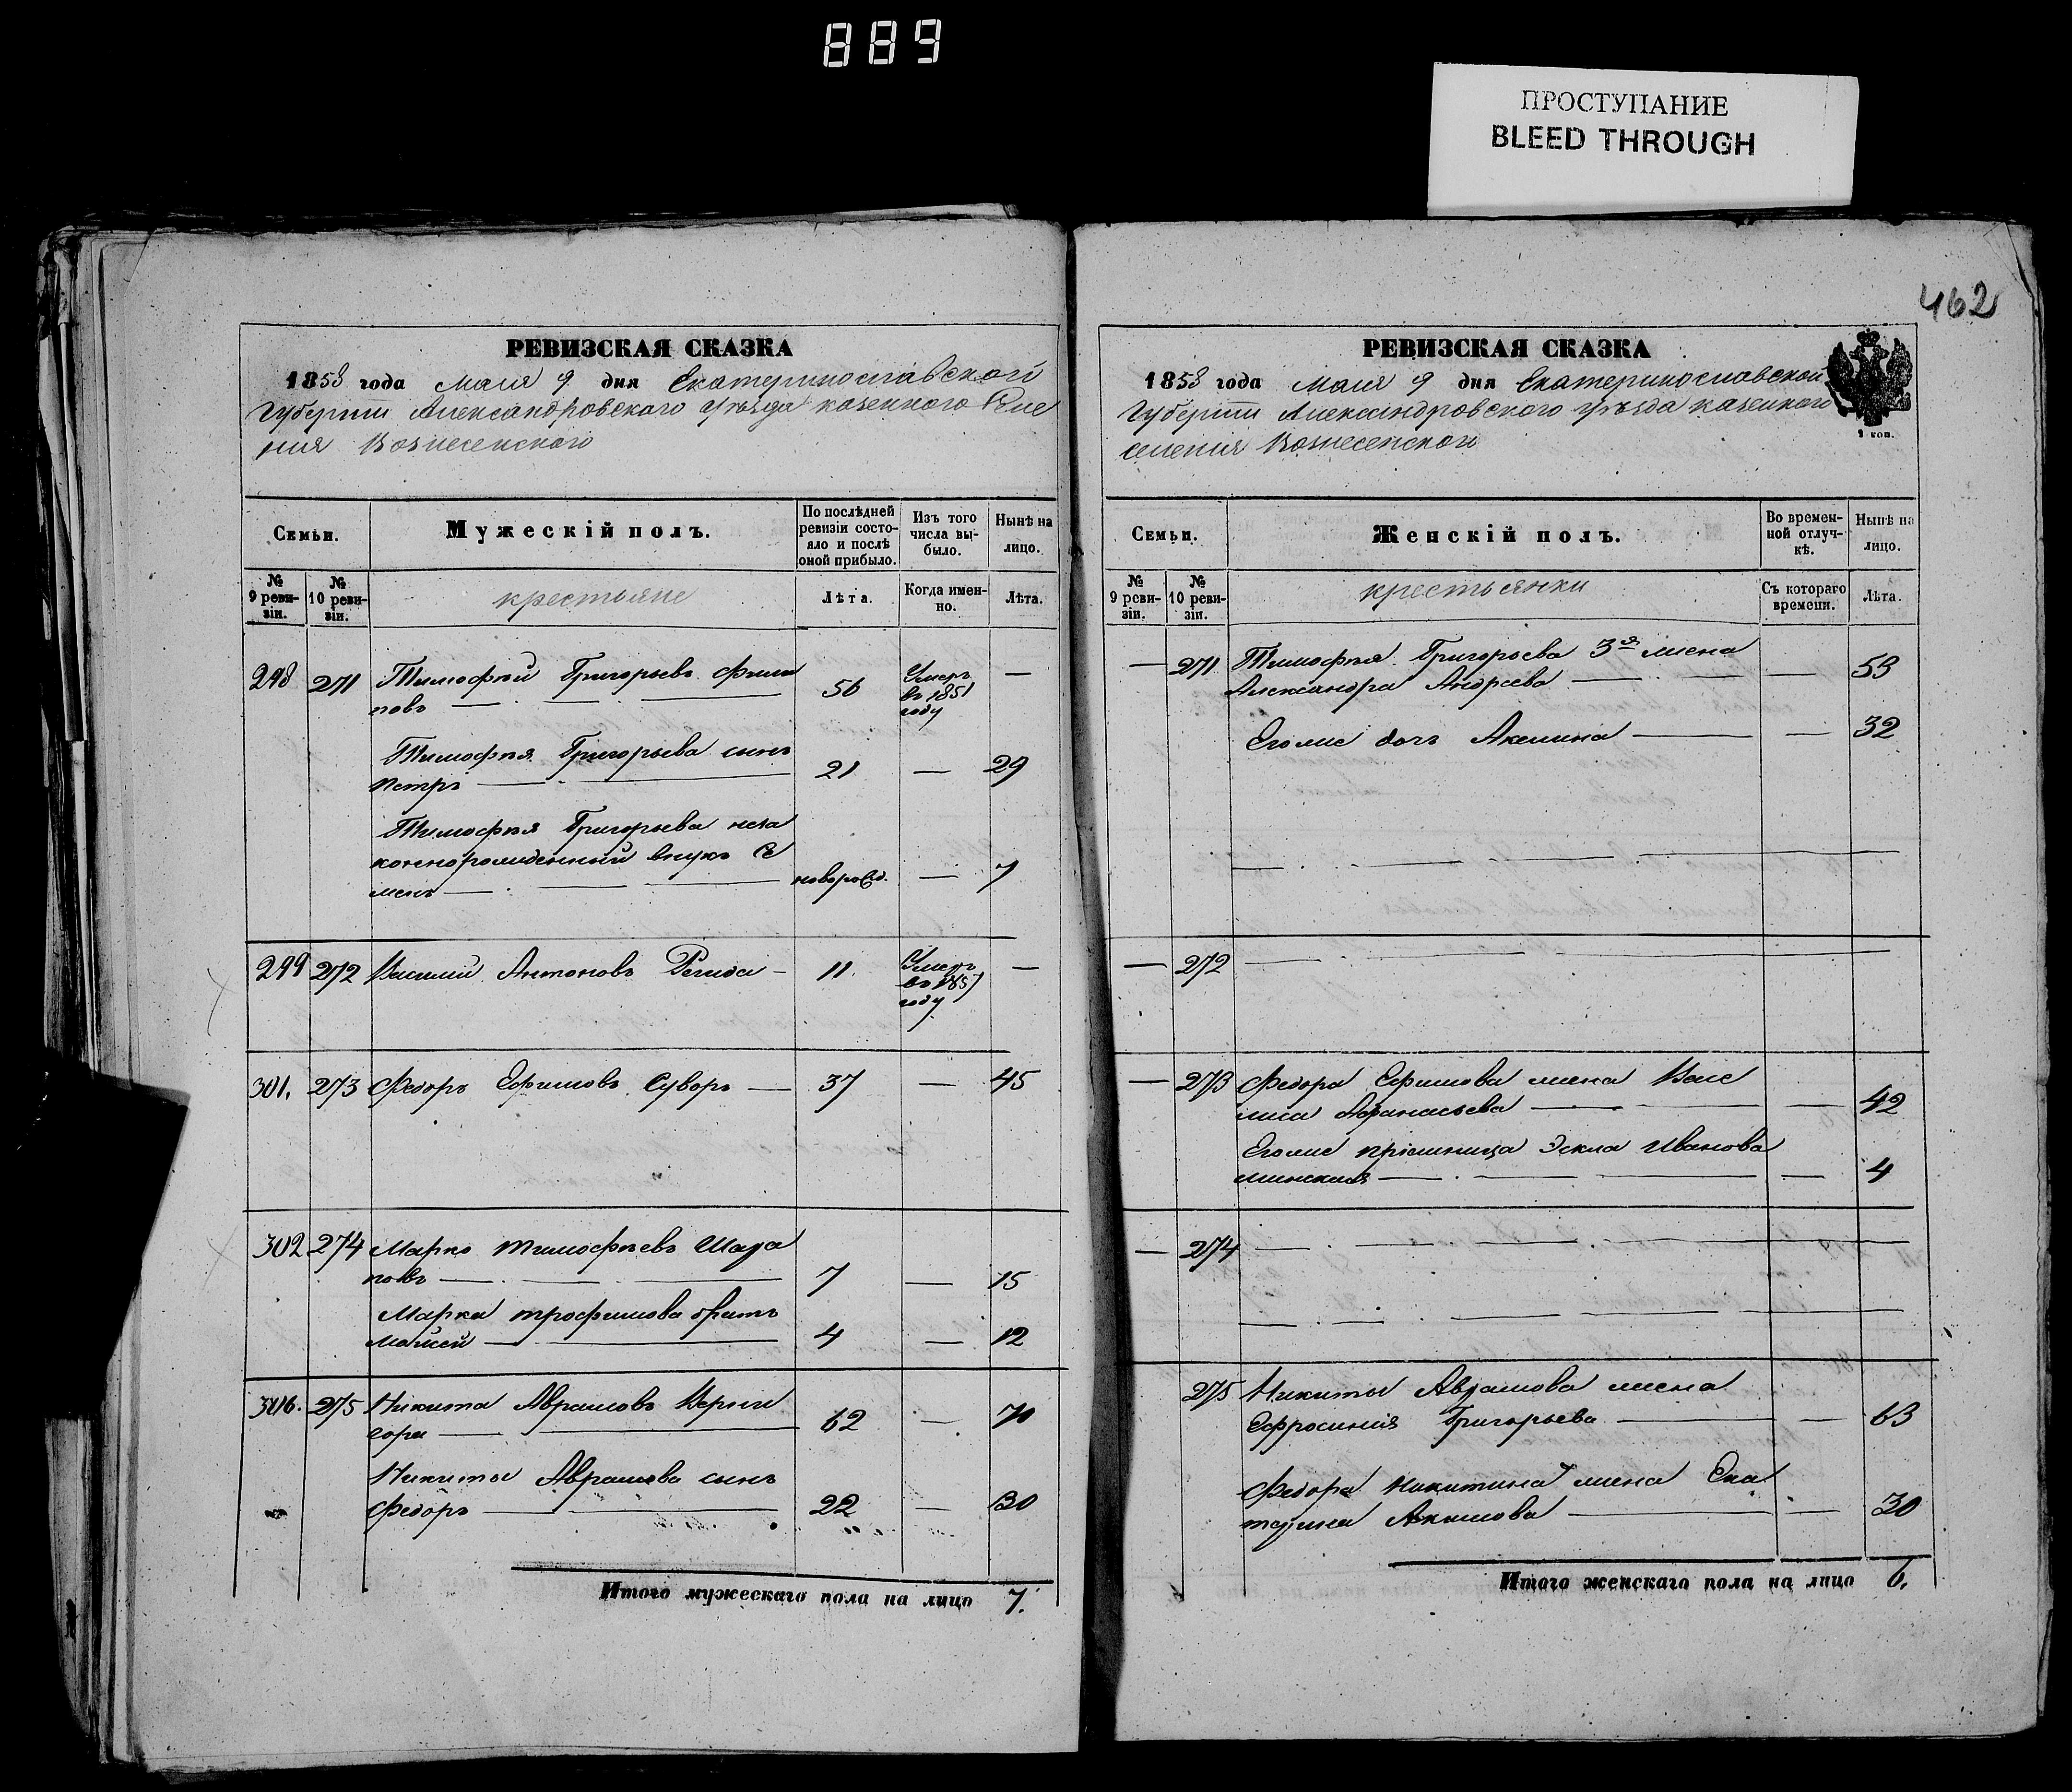 889
ПРОСТУПАНИЕ
BLEED THROUGH
462
РЕВИЗСКАЯ СКАЗКА
1858 года Маія 9 дня Екатеринославской
Губерніи Александровскаго уѣзда казеннаго Селе
нія Вознесенскаго
Семьи.
Мужескій полъ.
По послѣдней ревизіи состо-
яло и послѣ
оной прибыло.
Изъ того
числа вы-
было.
Нынѣ на
лицо.
№
9 реви-
зіи.
№
10 реви-
зіи.
крестьяне
Лѣта.
Когда имен-
но.
Лѣта.
298 271 Тимофѣй Григорьевъ Фили
повъ — 56 Умеръ в 1851 году —
Тимофѣя Григорьева сынъ
Петръ — 21 — 29
Тимофѣя Григорьева неза
коннорожденный внукъ Се
менъ — новорожд. — 7
299 272 Василий Антоновъ — 11 Умеръ в 1857 году —
301. 273 Федоръ Ефимовъ Суворъ — 37 — 45
302 274 Марко Тимофѣевъ Шара
повъ — 7 — 15
Марка трофимова братъ
Мойсей — 4 — 12
306. 275 Никита Аврамовъ Верни
гора — 62 — 70
Никиты Аврамова сынъ
Федоръ — 22 — 30
Итого мужескаго пола на лицо 7.
РЕВИЗСКАЯ СКАЗКА
1858 года Маія 9 дня Екатеринославской
Губерніи Александровскаго уѣзда казеннаго
селенія Вознесенскаго
1 коп.
Семьи.
Женскій полъ.
Во времен-
ной отлуч-
кѣ.
Нынѣ на
лицо.
№
9 реви-
зіи.
№
10 реви-
зіи.
крестьянки
Съ котораго
времени.
Лѣта.
— 271 Тимофѣя Григорьева 3я жена
Александра Андреева — — 53
Егоже дочь Акилина — — 32
— 272 —
— 273 Федора Ефимова жена Васе
лиса Афанасьева — — 42
Егоже пріемница Эскла Иванова
— — 4
— 274 —
275 Никиты Аврамова жена
Ефросинія Григорьева — — 63
Федора Никитина жена Ека
терина Акимова — — 30
Итого женскаго пола на лицо 6.